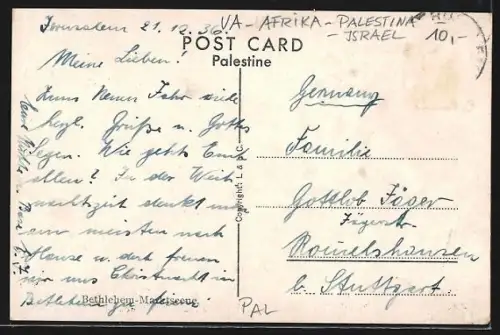 Jerusalem 21.12.36.
VA - AFRIKA - PALESTINA
- ISRAEL
10,-
POST CARD
Palestine
Meine Lieben!
Zum Neuen Jahr viele
herzl. Grüße u. Gottes
Segen. Wie gehts Euch
allen? In der Weih
nachtszeit denkt man
am meisten nach
Hause u. doch freuen
wir uns Christnacht in
Bethlehem zu feiern
Bethlehem-Marketscene.
Copyright: L. & C.
Germany
Familie
Gottlob Jäger
Jägerstr.
b. Stuttgart.
PAL